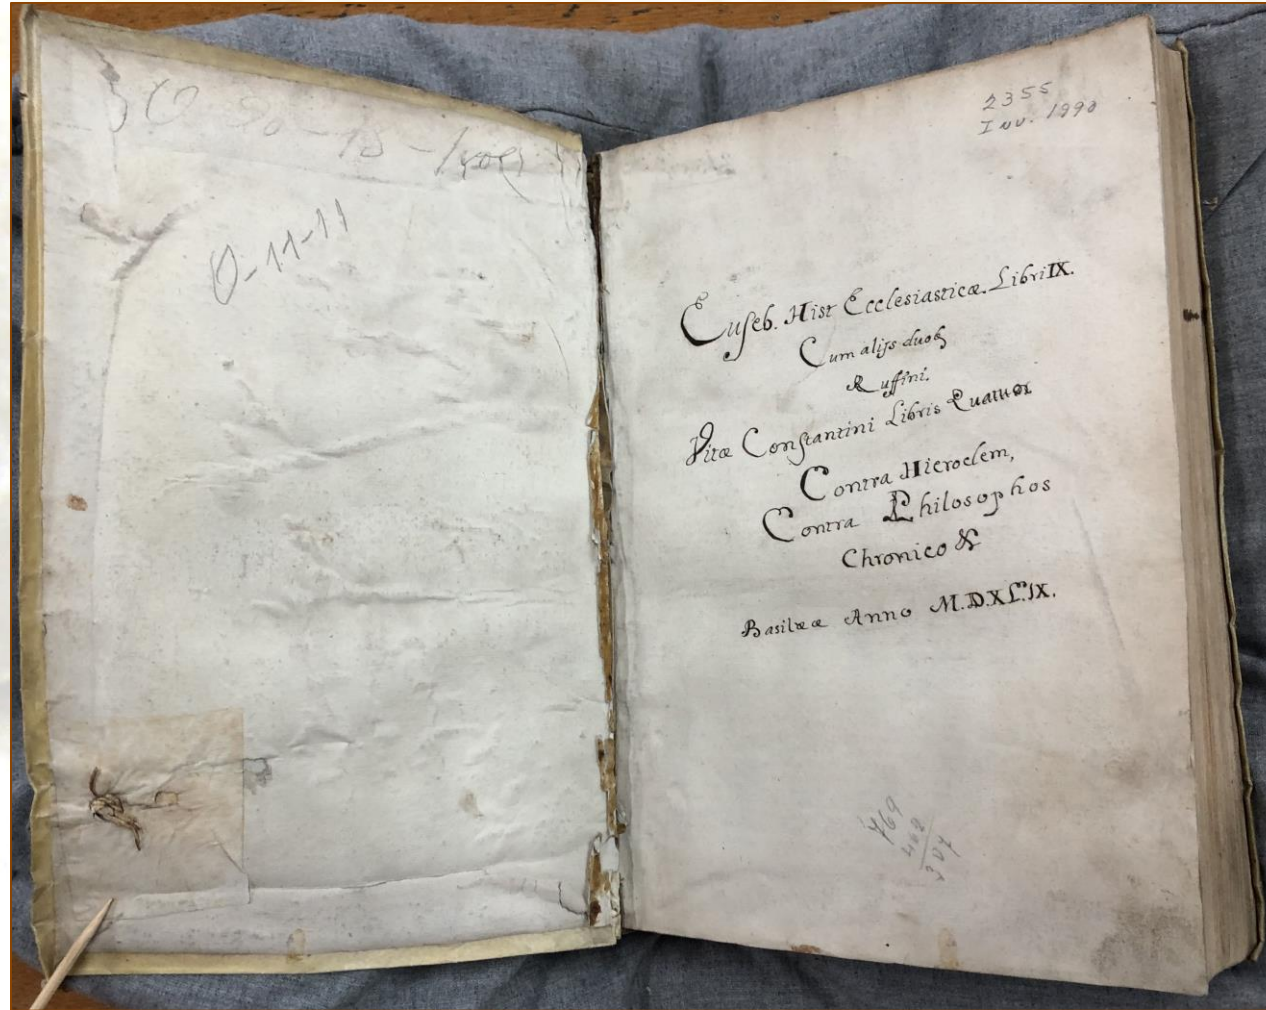 0-11-11
2355
Inv. 1990
Euseb. Hist Ecclesiasticæ. Libri IX.
Cum alijs duobꝫ
Ruffini.
Vitæ Constantini Libris Quatuor
Contra Hieroclem,
Contra Philosophos
Chronico &
Basilææ Anno M.D.XL.IX.
769
462
307